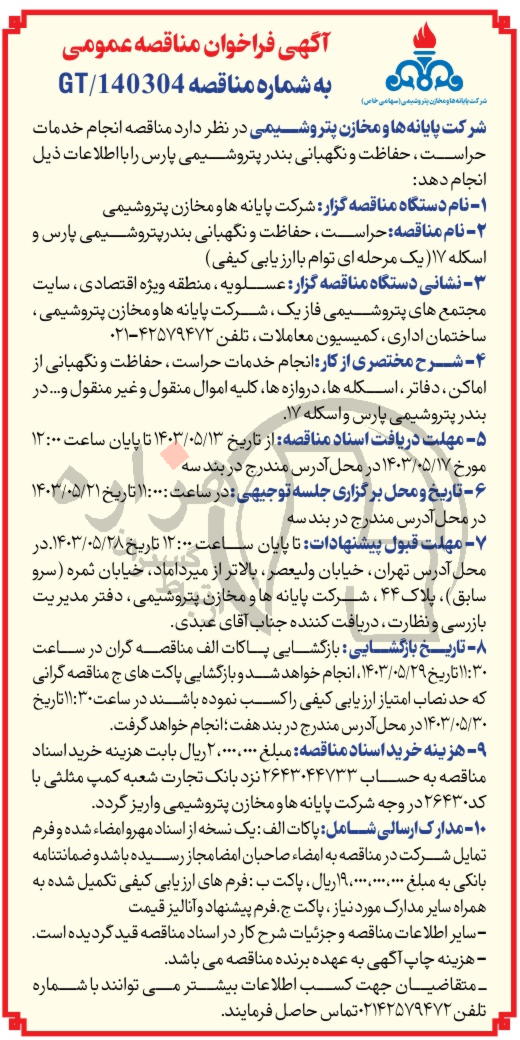 آگهی فراخوان مناقصه عمومی
به شماره مناقصه GT/140304
شرکت پایانه ها و مخازن پتروشیمی (سهامی خاص)
شرکت پایانه ها و مخازن پتروشیمی در نظر دارد مناقصه انجام خدمات
حراست ، حفاظت و نگهبانی بندر پتروشیمی پارس را با اطلاعات ذیل
انجام دهد:
۱- نام دستگاه مناقصه گزار: شرکت پایانه ها و مخازن پتروشیمی
۲- نام مناقصه: حراست ، حفاظت و نگهبانی بندر پتروشیمی پارس و
اسکله ۱۷ (یک مرحله ای توام با ارزیابی کیفی)
۳- نشانی دستگاه مناقصه گزار: عسلویه ، منطقه ویژه اقتصادی ، سایت
مجتمع های پتروشیمی فاز یک ، شرکت پایانه ها و مخازن پتروشیمی ،
ساختمان اداری ، کمیسیون معاملات ، تلفن ۴۲۵۷۹۴۷۲-۰۲۱
۴- شرح مختصری از کار: انجام خدمات حراست ، حفاظت و نگهبانی از
اماکن ، دفاتر ، اسکله ها، دروازه ها، کلیه اموال منقول و غیر منقول و... در
بندر پتروشیمی پارس و اسکله ۱۷.
۵- مهلت دریافت اسناد مناقصه: از تاریخ ۱۴۰۳/۰۵/۱۳ تا پایان ساعت ۱۲:۰۰
مورخ ۱۴۰۳/۰۵/۱۷ در محل آدرس مندرج در بند سه
۶- تاریخ و محل برگزاری جلسه توجیهی: در ساعت : ۱۱:۰۰ تاریخ ۱۴۰۳/۰۵/۲۱
در محل آدرس مندرج در بند سه
۷- مهلت قبول پیشنهادات: تا پایان ساعت ۱۲:۰۰ تاریخ ۱۴۰۳/۰۵/۲۸. در
محل آدرس تهران ، خیابان ولیعصر ، بالاتر از میرداماد، خیابان ثمره (سرو
سابق)، پلاک ۴۴ ، شرکت پایانه ها و مخازن پتروشیمی ، دفتر مدیریت
بازرسی و نظارت ، دریافت کننده جناب آقای عبدی.
۸- تاریخ بازگشایی : بازگشایی پاکات الف مناقصه گران در ساعت
۱۱:۳۰ تاریخ ۱۴۰۳/۰۵/۲۹، انجام خواهد شد و بازگشایی پاکت های ج مناقصه گرانی
که حد نصاب امتیاز ارزیابی کیفی را کسب نموده باشند در ساعت ۱۱:۳۰ تاریخ
۱۴۰۳/۰۵/۳۰ در محل آدرس مندرج در بند هفت ؛ انجام خواهد گرفت.
۹- هزینه خرید اسناد مناقصه: مبلغ ۲,۰۰۰,۰۰۰ ریال بابت هزینه خرید اسناد
مناقصه به حساب ۲۶۴۳۰۴۴۷۳۳ نزد بانک تجارت شعبه کمپ مثلثی با
کد ۲۶۴۳۰ در وجه شرکت پایانه ها و مخازن پتروشیمی واریز گردد.
۱۰- مدارک ارسالی شامل: پاکات الف : یک نسخه از اسناد مهر و امضاء شده و فرم
تمایل شرکت در مناقصه به امضاء صاحبان امضا مجاز رسیده باشد و ضمانتنامه
بانکی به مبلغ ۱۹,۰۰۰,۰۰۰,۰۰۰ ریال ، پاکت ب : فرم های ارزیابی کیفی تکمیل شده به
همراه سایر مدارک مورد نیاز ، پاکت ج. فرم پیشنهاد و آنالیز قیمت
- سایر اطلاعات مناقصه و جزئیات شرح کار در اسناد مناقصه قید گردیده است.
- هزینه چاپ آگهی به عهده برنده مناقصه می باشد.
- متقاضیان جهت کسب اطلاعات بیشتر می توانند با شماره
تلفن ۰۲۱۴۲۵۷۹۴۷۲ تماس حاصل فرمایند.
هزاره